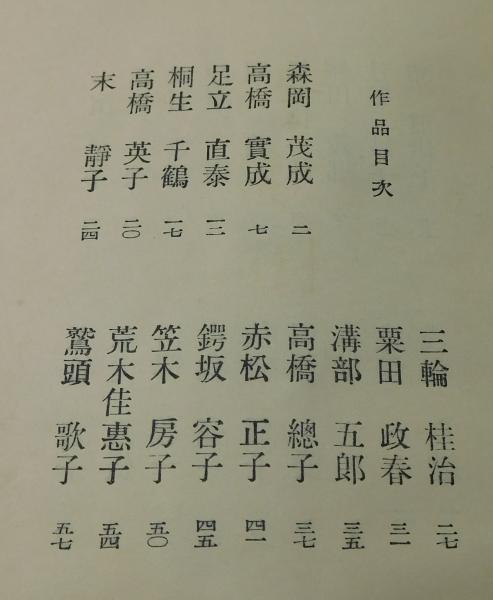 作品目次
森岡 茂成 二
高橋 實成 七
足立 直泰 一二
桐生 千鶴 一七
高橋 英子 二〇
末 靜子 二四
三輪 桂治 二七
粟田 政春 三一
溝部 五郎 三五
高橋 總子 三七
赤松 正子 四一
鍔坂 容子 四五
笠木 房子 五〇
荒木佳惠子 五四
鷲頭 歌子 五七